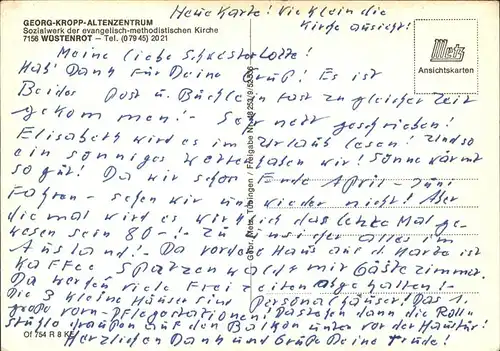 Neue Karte! Wie klein die
Kirche aussieht!
GEORG-KROPP-ALTENZENTRUM
Sozialwerk der evangelisch-methodistischen Kirche
7156 WÜSTENROT – Tel. (07945) 2021
Metz
Ansichtskarten
Meine liebe Schwester Lotte!
Hab' Dank für Deine Grüß! Es ist
Beides Post u. Büchlein fast zu gleicher Zeit
gekommen! – Sehr nett geschrieben!
Elisabeth wird es im Urlaub lesen! Und so
ein sonniges Wetter haben wir! Sonne wärmt
so gut! Da wir schon Ende April – Juni
fahren – sehen wir uns wieder nicht! Aber
diesmal wird es wirklich das letzte Mal ge-
wesen sein 80 –! – Zu unsicher alles im
Ausland! – Da vordere Haus auf d. Karte ist
Kaffee Spatzenwald mit Gästezimmer.
Da werden viele Freizeiten abgehalten! –
Die 3 kleine Häuser sind Personalhäuser! Das 1.
große vorn – Pflegestationen! Da stehen dann die Roll-
stühle draußen auf den Balkon unter vor der Haustür!
Herzlichen Dank und Grüße Deine Trude!
Gebr. Metz, Tübingen / Freigabe Nr.
Of 754 R 8 K